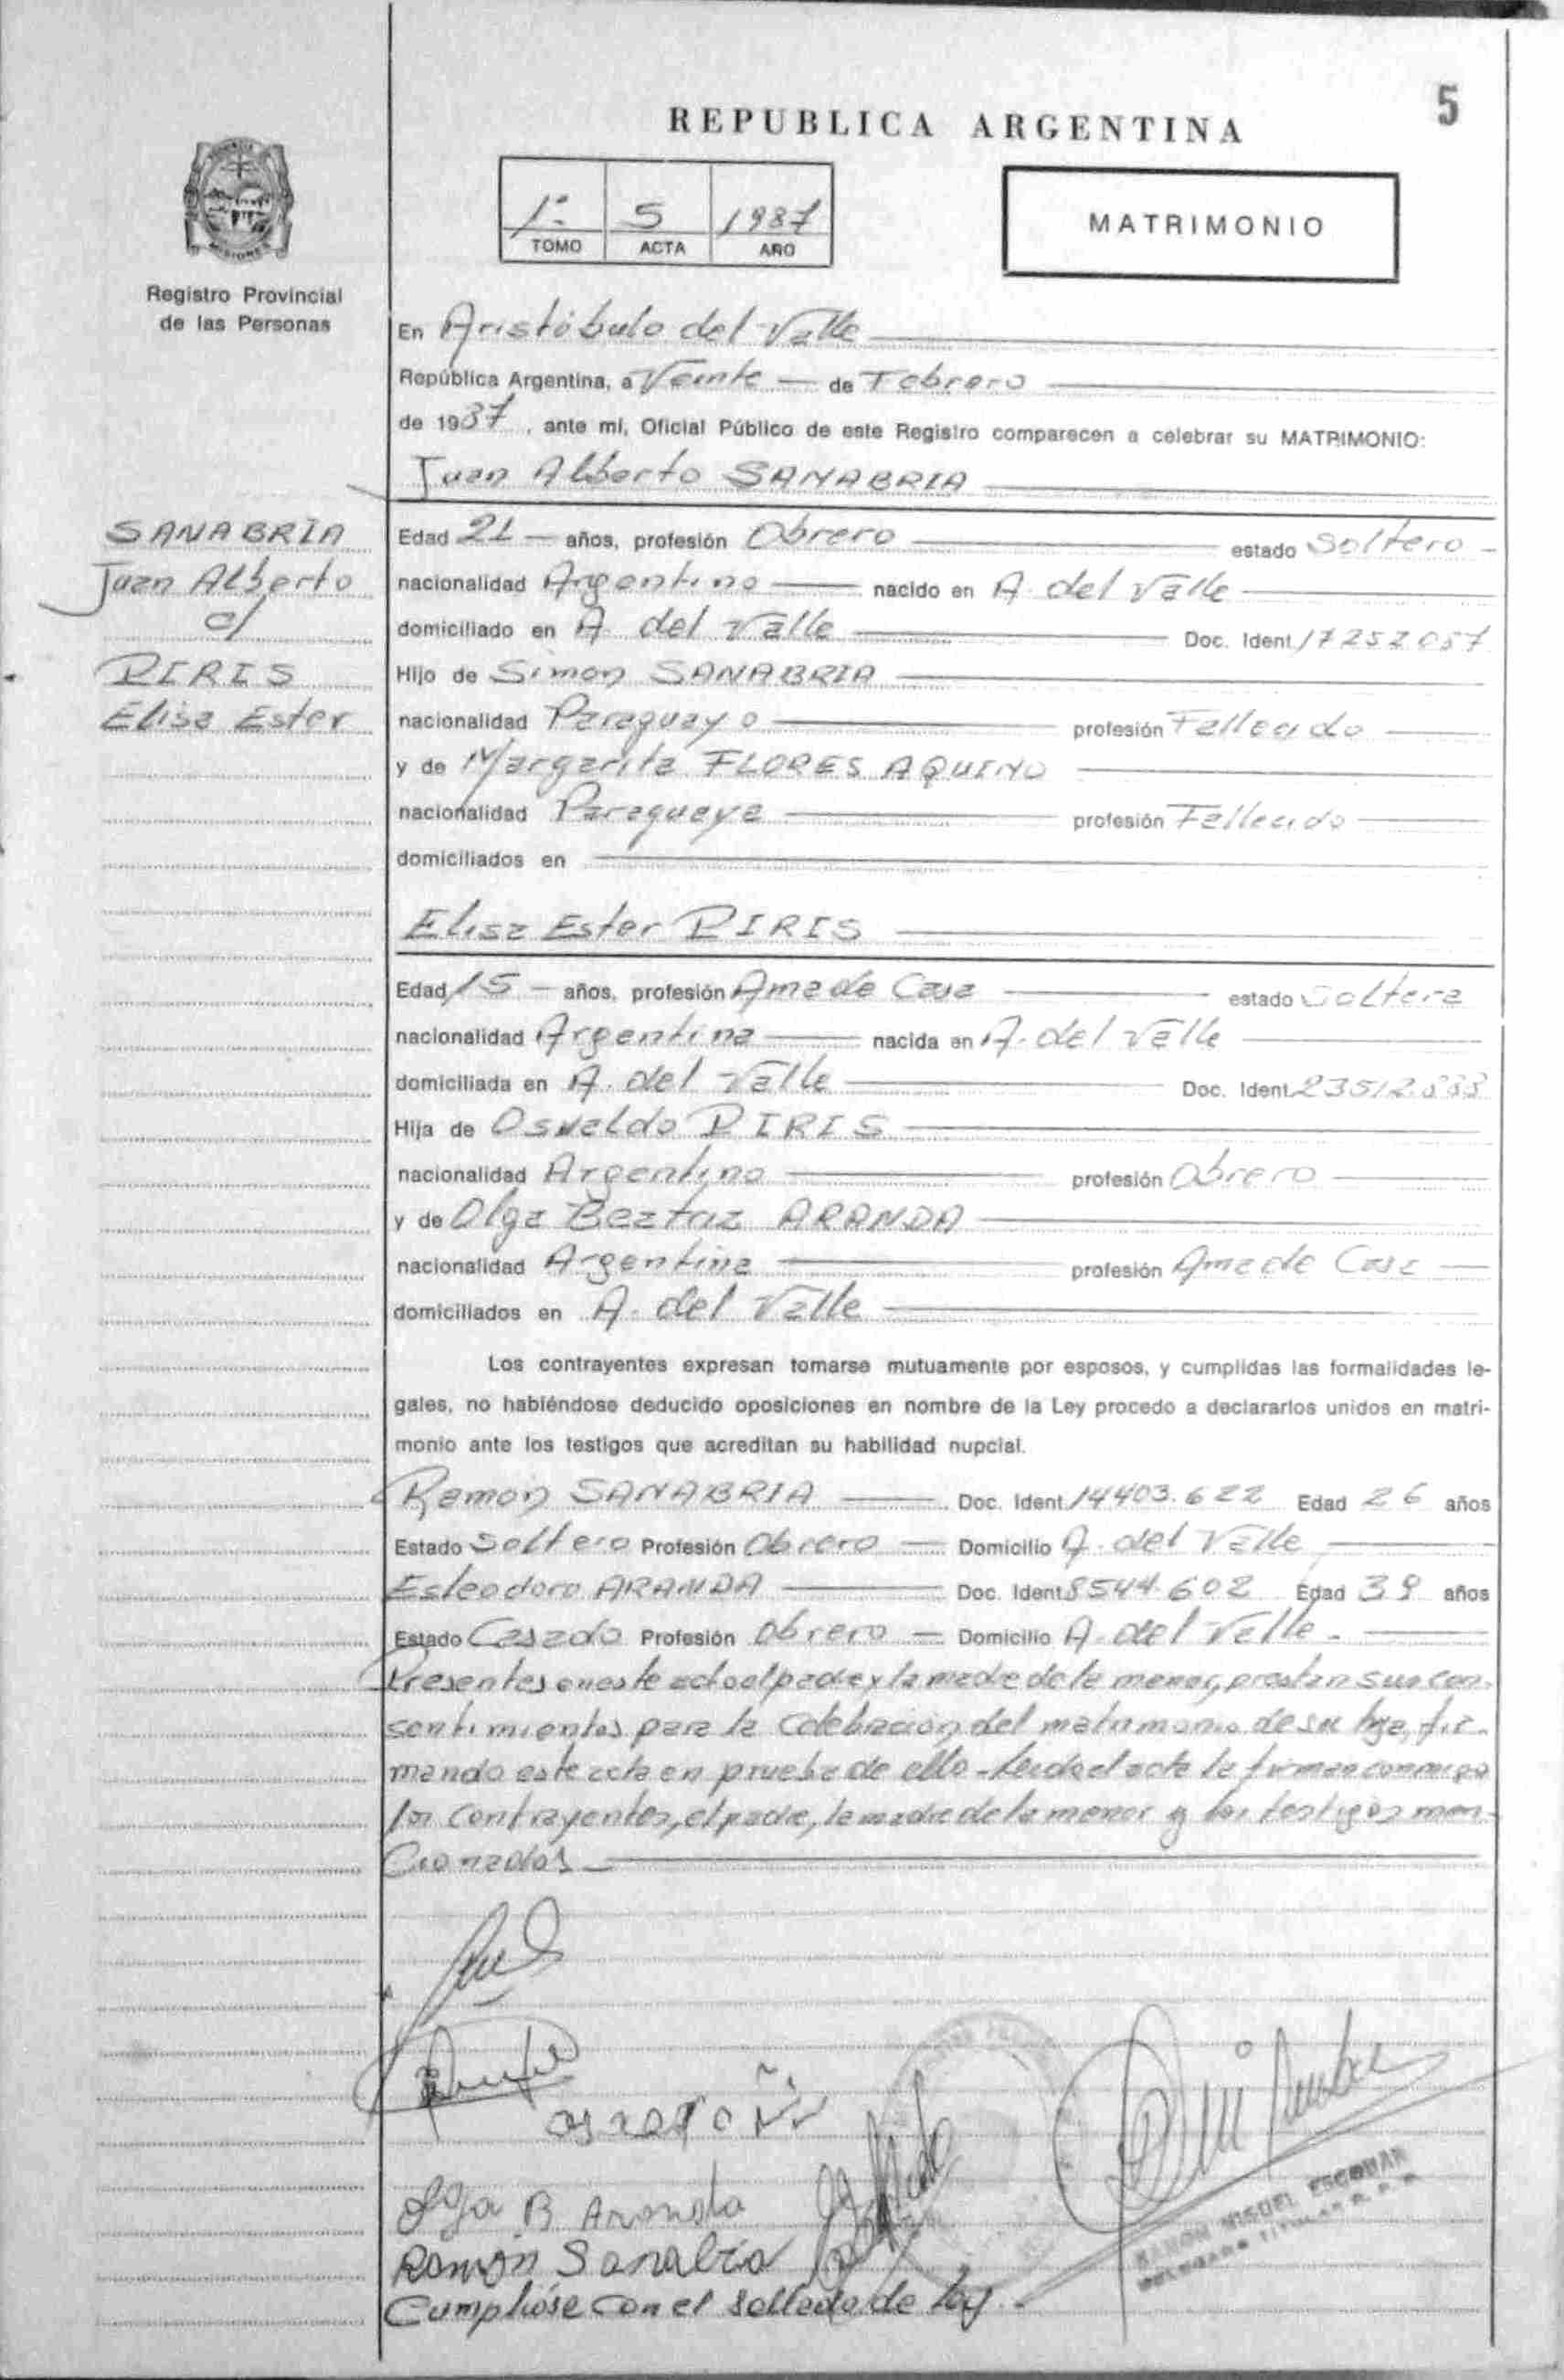 5
REPUBLICA ARGENTINA
1º 5 1987
TOMO ACTA AÑO
MATRIMONIO
MISIONES
Registro Provincial
de las Personas
SANABRIA
Juan Alberto
c/
PIRIS
Elisa Ester
En Aristóbulo del Valle
República Argentina, a Veinte de Febrero
de 1987, ante mí, Oficial Público de este Registro comparecen a celebrar su MATRIMONIO:
Juan Alberto SANABRIA
Edad 21 años, profesión Obrero estado Soltero
nacionalidad Argentino nacido en A. del Valle
domiciliado en A. del Valle Doc. Ident. 17252057
Hijo de Simon SANABRIA
nacionalidad Paraguayo profesión Fallecido
y de Margarita FLORES AQUINO
nacionalidad Paraguaya profesión Fallecido
domiciliados en
Elisa Ester PIRIS
Edad 15 años, profesión Ama de Casa estado Soltera
nacionalidad Argentina nacida en A. del Valle
domiciliada en A. del Valle Doc. Ident. 23512.888
Hija de Osvaldo PIRIS
nacionalidad Argentino profesión Obrero
y de Olga Beatriz ARANDA
nacionalidad Argentina profesión Ama de Casa
domiciliados en A. del Valle
Los contrayentes expresan tomarse mutuamente por esposos, y cumplidas las formalidades le-
gales, no habiéndose deducido oposiciones en nombre de la Ley procedo a declararlos unidos en matri-
monio ante los testigos que acreditan su habilidad nupcial.
Ramon SANABRIA Doc. Ident. 14403.622 Edad 26 años
Estado Soltero Profesión Obrero Domicilio A. del Valle
Esteodoro ARANDA Doc. Ident. 8544.602 Edad 39 años
Estado Casado Profesión Obrero Domicilio A. del Valle.
Presentes en este acto el padre y la madre de la menor, prestan sus con-
sentimientos para la celebración del matrimonio de su hija, fir-
mando este acta en prueba de ello - Leida el acta la firman conmigo
los contrayentes, el padre, la madre de la menor y los testigos men-
cionados
Olga B Aranda
Ramón Sanabria
RAMON MIGUEL ESCOBAR
DELEGADO TITULAR R. P. P.
Cumplióse con el sellado de ley.